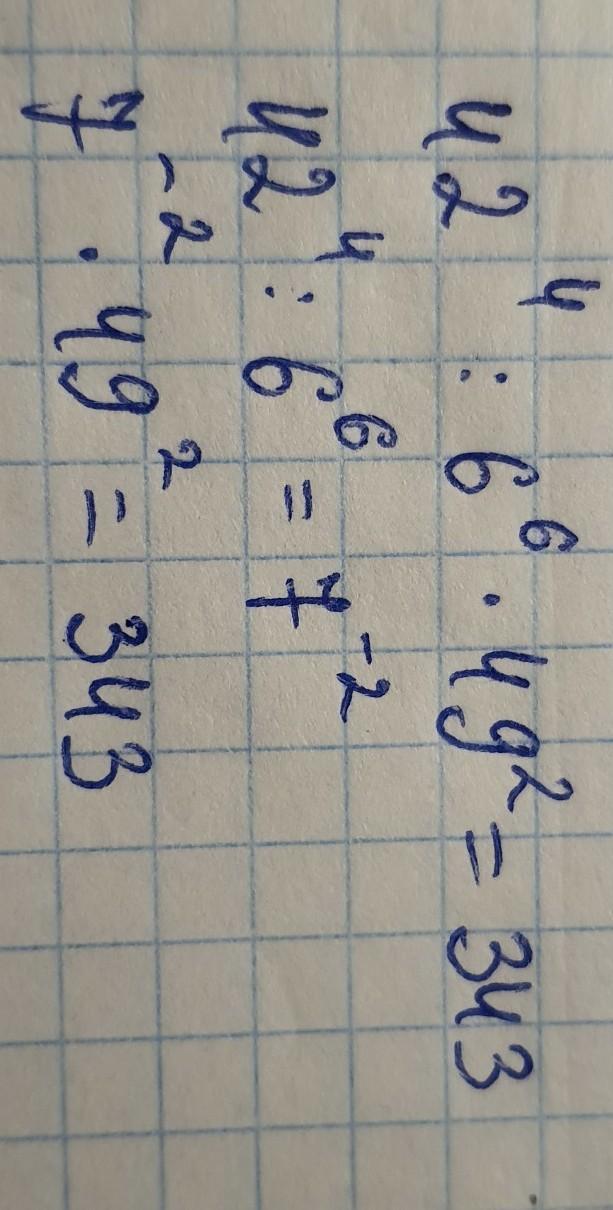 42⁴ : 6⁶ · 49² = 343
42⁴ : 6⁶ = 7⁻²
7⁻² · 49² = 343